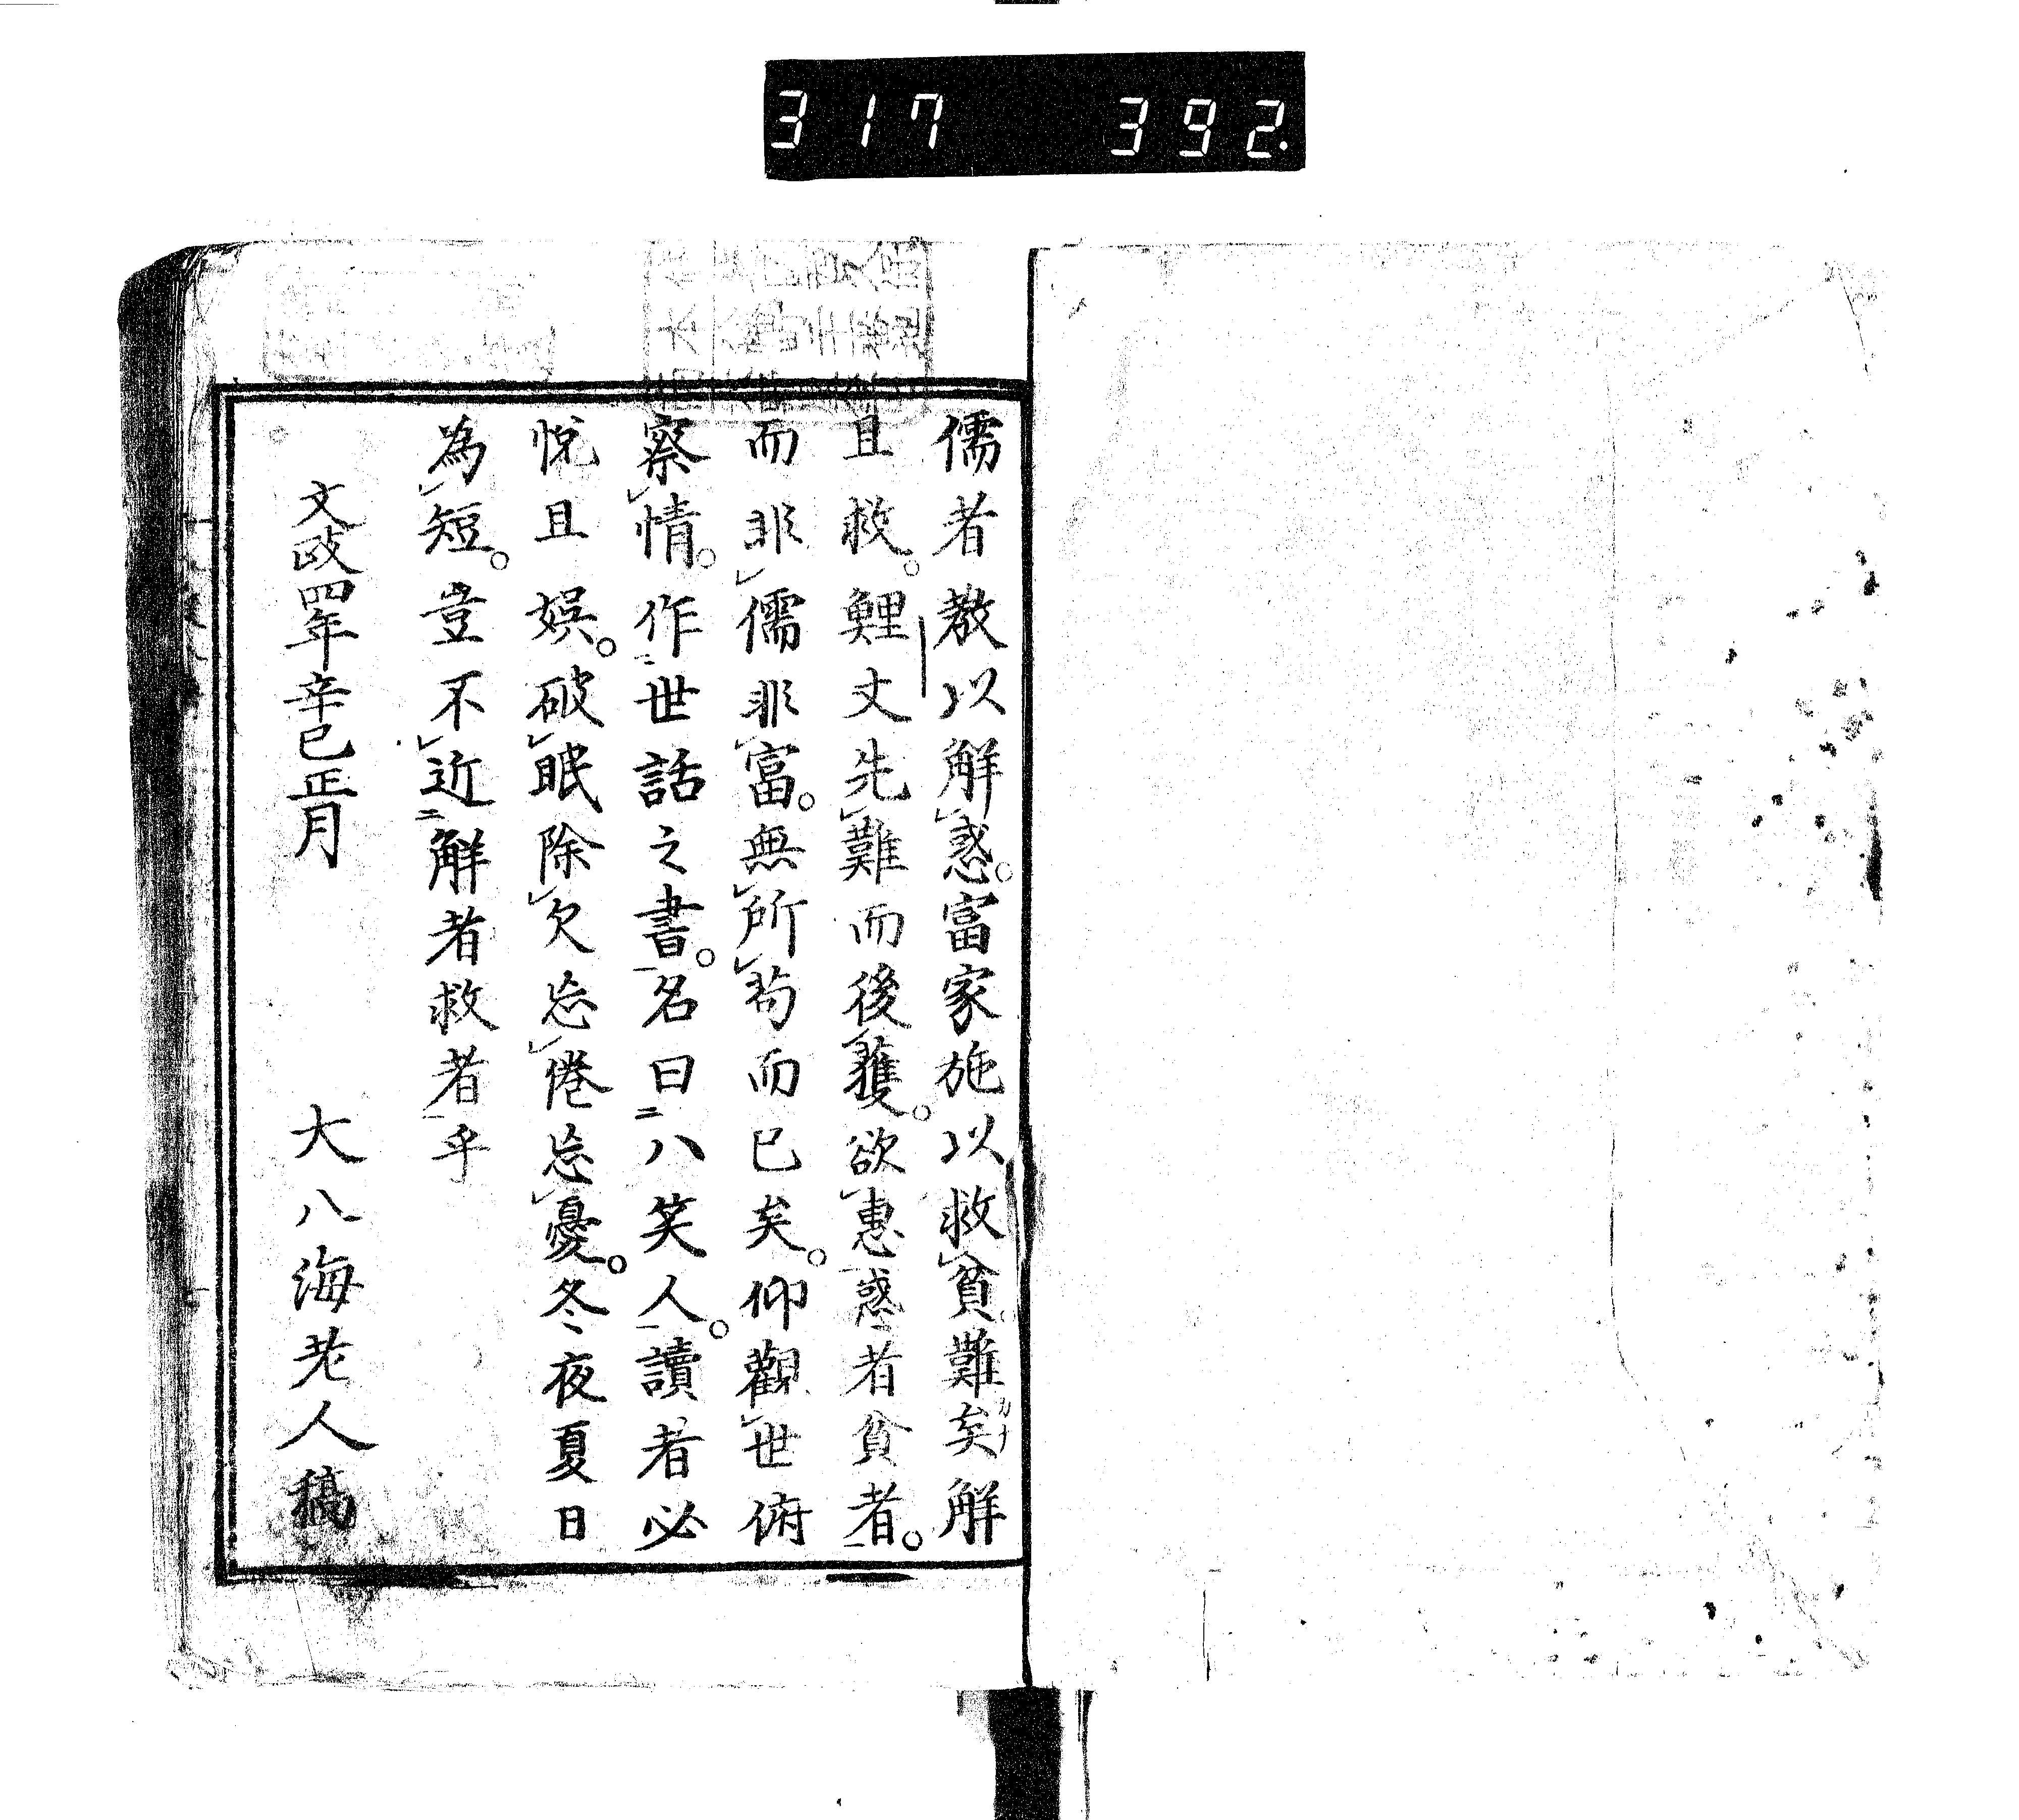 317 392.
儒者教以解惑。富家施以救貧難矣解
且救。鯉丈先難而後獲。欲惠惑者貧者。
而非儒非富。無所苟而已矣。仰觀世俯
察情。作世話之書。名曰八笑人。讀者必
悅且娯。破眠除欠忘倦忘憂。冬夜夏日
為短。豈不近解者救者乎
文政四年辛巳正月
大八海老人稿